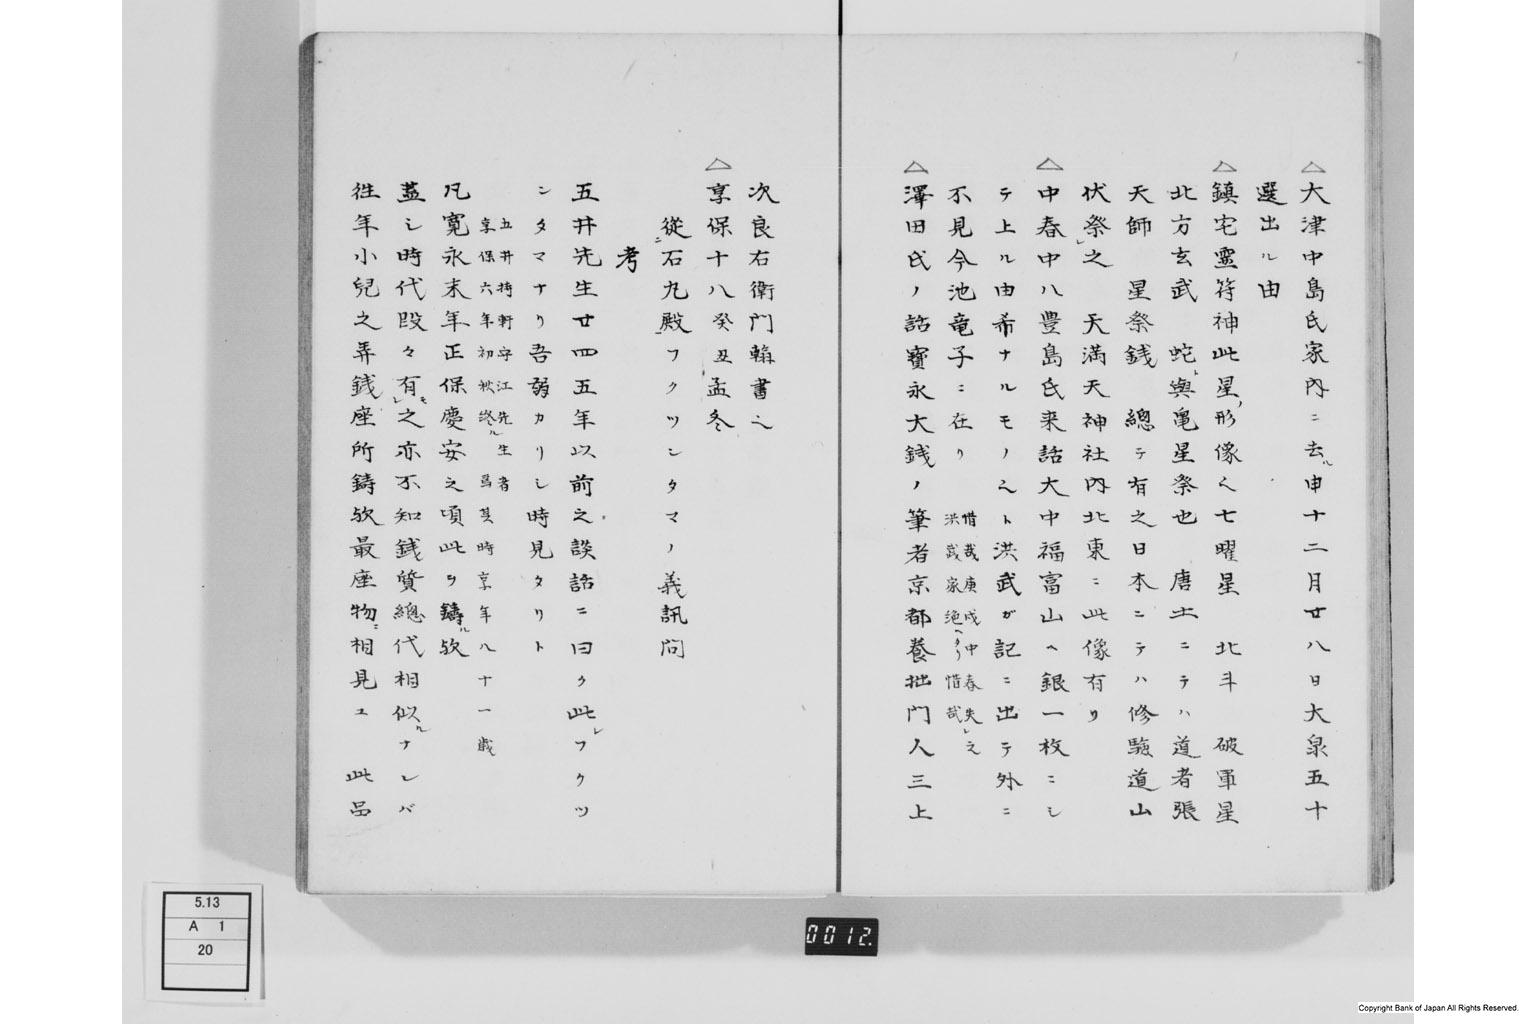 △大津中島氏家内ニ去ル申十二月廿八日大泉五十
選出ル由
△鎮宅霊符神此星ノ形像く七曜星 北斗 破軍星
北方玄武 蛇ト與亀星祭也 唐土ニテハ道者張
天師 星祭銭 總テ有之日本ニテハ修験道山
伏祭レ之 天満天神社内北東ニ此像有リ
△中春中ハ豊島氏来話大中福富山ヘ銀一枚ニシ
テ上ル由希ナルモノ之ト洪武ガ記ニ出テ外ニ
不見今池竜子ニ在リ 惜哉庚戌中春失レ之
洪武家絶ヘタリ惜哉
△澤田氏ノ話寶永大銭ノ筆者京都養拙門人三上
次良右衛門翰書之
△享保十八癸丑孟冬
従二石九殿一フクツンタマノ義訊問
考
五井先生廿四五年以前之談話ニ曰ク此レフクツ
ンタマナリ吾弱カリシ時見タリト
五井持軒守江先生者
享保六年初秋終ル焉其時享年八十一歳
凡寛永末年正保慶安之頃此ヲ鋳ル欤
蓋シ時代段々有レ之亦不知銭質總代相似ルナレバ
往年小児之弄銭座所鋳欤最座物ニ相見ユ 此品
5.13
A 1
20
0012.
Copyright Bank of Japan All Rights Reserved.